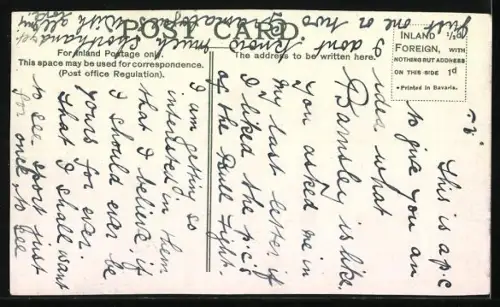 POST CARD.
For Inland Postage only.
This space may be used for correspondence.
(Post office Regulation).
The address to be written here.
INLAND ½D
FOREIGN, WITH
NOTHING BUT ADDRESS
ON THIS SIDE 1d
• Printed in Bavaria.
This is a p.c
to give you an
idea what
Barnsley is like.
You asked me in
my last letter if
I liked the pics
of the Bull Fight.
I am getting so
interested in them
that I believe if
I should ever be
yours for ever.
that I shall want
to see sport just
for once to see
I dont know much shorthand
just one or two
With all my